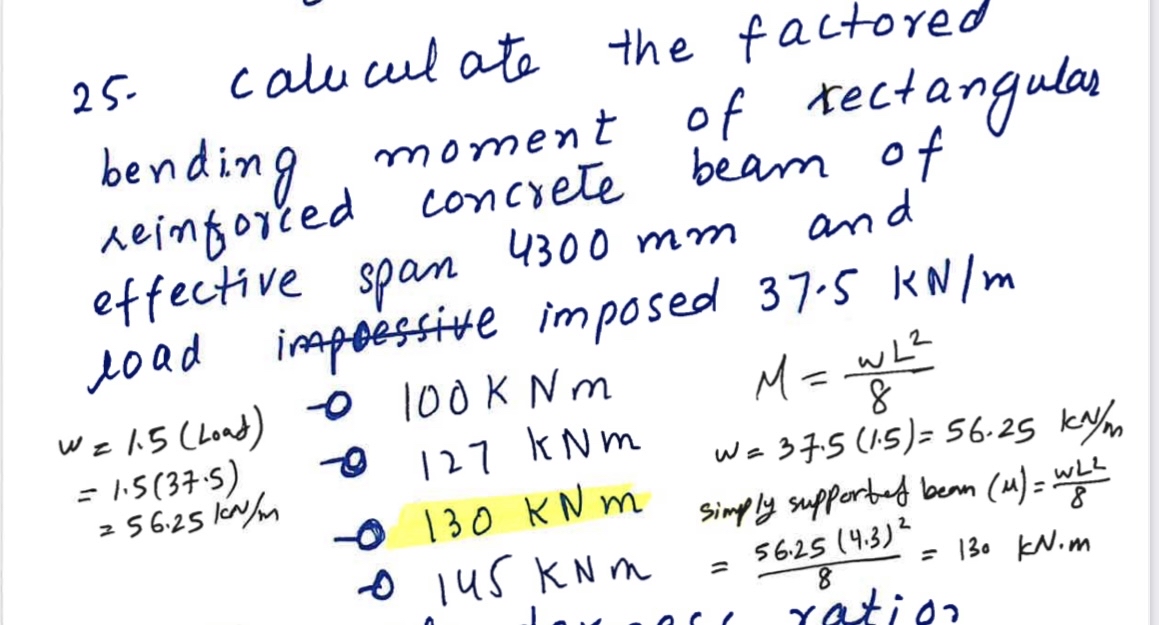 25. calucul ate the factored
bending moment of rectangular
reinforced concrete beam of
effective span 4300 mm and
load impoessive imposed 37.5 KN/m
100 K N m
127 KNm
130 KNm
145 KNm
w = 1.5 (Load)
= 1.5(37.5)
= 56.25 kN/m
M = wL²/8
w = 37.5 (1.5) = 56.25 kN/m
simply supported beam (M) = wL²/8
= 56.25 (4.3)²/8 = 130 kN.m
ratio